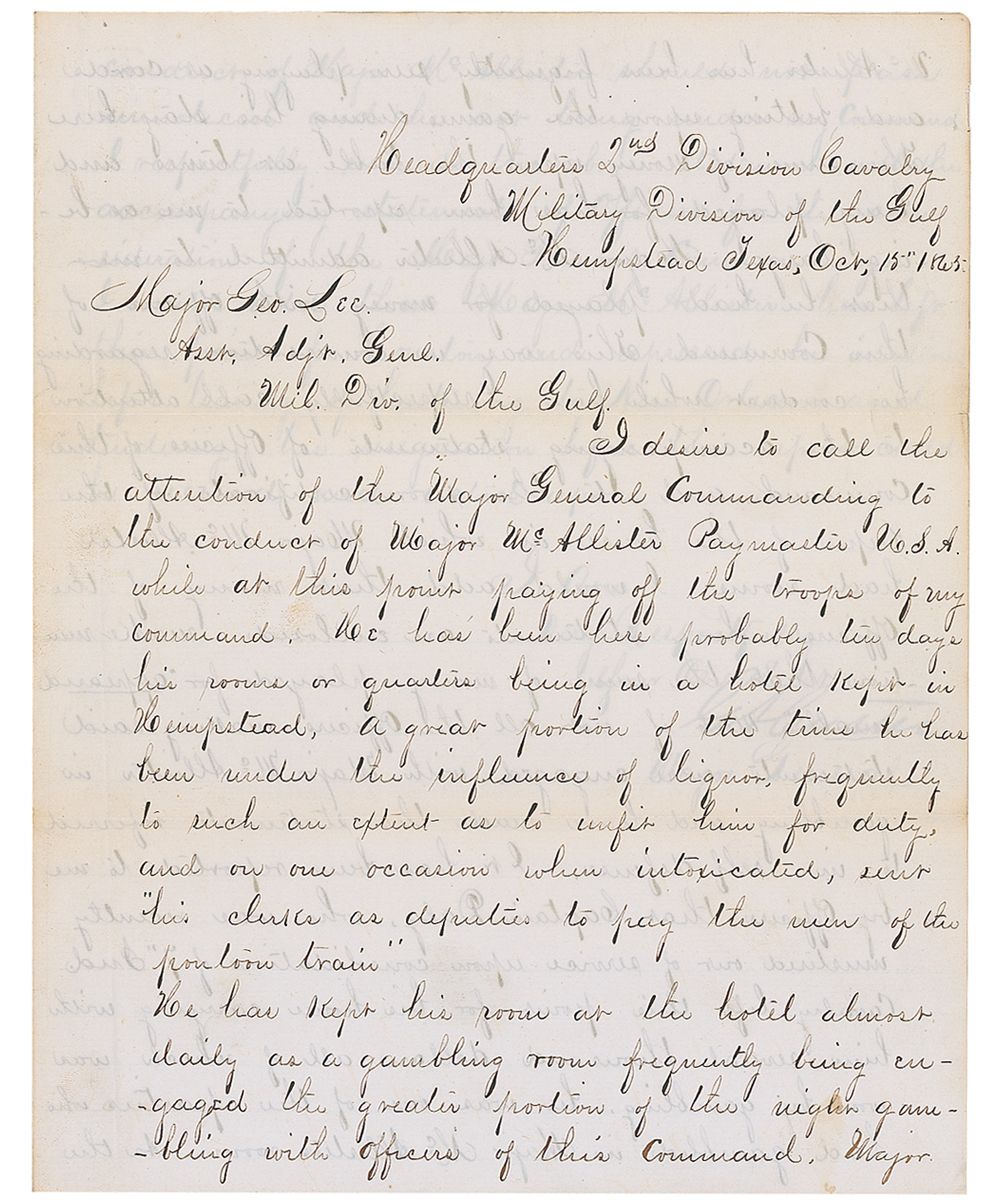 Headquarters 2nd Division Cavalry
Military Division of the Gulf
Hempstead Texas, Oct, 15" 1865.
Major Geo. Lee.
Asst. Adjt. Genl.
Mil. Div. of the Gulf.
I desire to call the
attention of the Major General Commanding to
the conduct of Major Mc Allister Paymaster U.S.A.
while at this point paying off the troops of my
command. He has been here probably ten days
his rooms or quarters being in a hotel kept in
Hempstead, a great portion of the time he has
been under the influence of liquor, frequently
to such an extent as to unfit him for duty,
and on one occasion when intoxicated, sent
"his clerks as deputies to pay the men of the
pontoon train"
He has kept his room at the hotel almost
daily as a gambling room frequently being en-
-gaged the greater portion of the night gam-
-bling with officers of this Command. Major